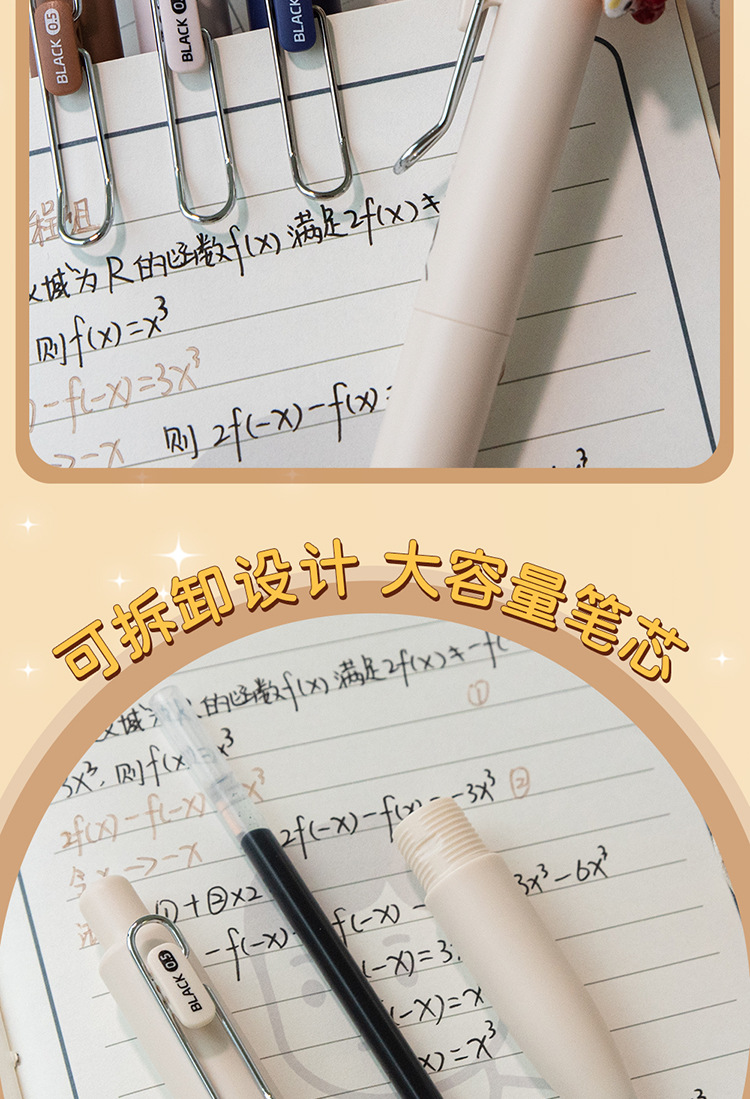 BLACK 0.5
BLACK 0.5
BLACK 0.5
程组
域为R的函数f(x)满足2f(x)+
则f(x)=x³
-f(-x)=3x³
->-x 则 2f(-x)-f(x)=
x³
可拆卸设计 大容量笔芯
域 的函数f(x)满足2f(x)+-f(
①
3x³,则f(x)=x³
2f(x)-f(-x) x³
2f(-x)-f(x)=-3x³ ②
令x->-x
①+②×2 3x³-6x³
-f(-x) f(-x)-
(-x)=3
BLACK 0.5
(-x)=x
x)=x³